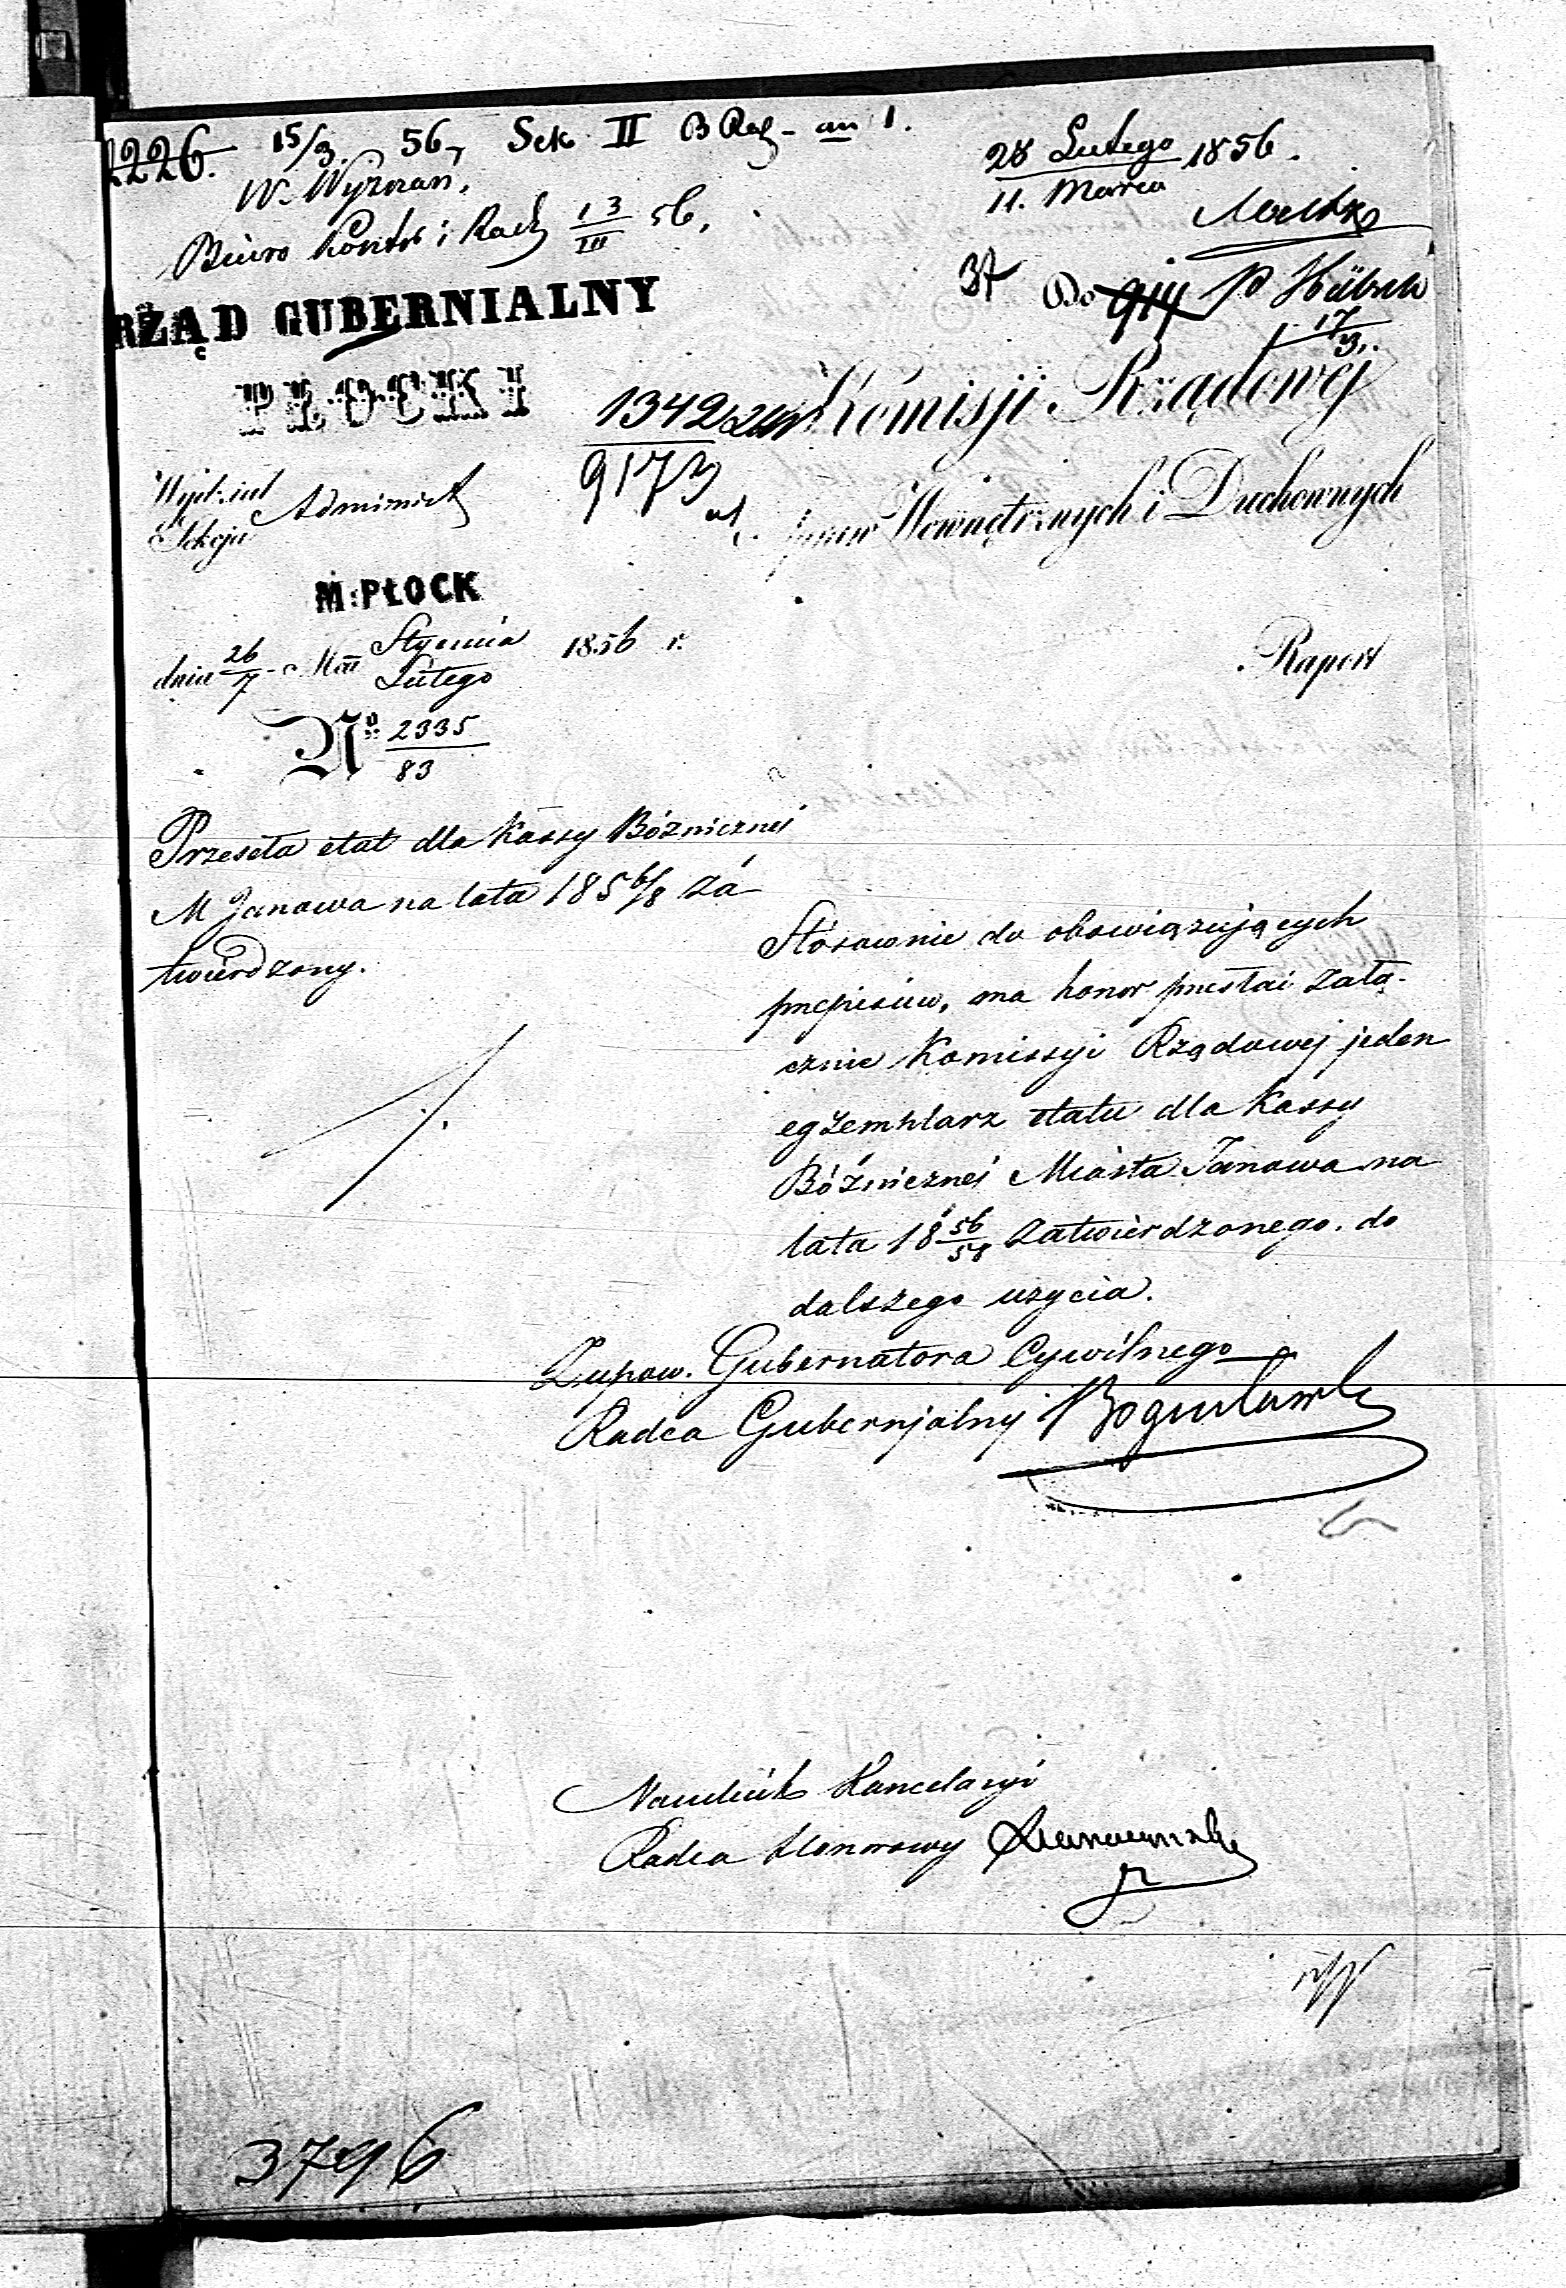 2226. 15/3. 56, Sek II B Rach - an 1.
W. Wyznań,
Biuro Kontr i Rach 13/III 56,
28 Lutego 1856.
11. Marca
37 Do 914 P Hübsch
17/3.
RZĄD GUBERNIALNY
PŁOCKI
1342
9173
Kommisji Rządowej
Spraw Wewnętrznych i Duchownych
Wydział Administ
Sekcja
M. PŁOCK
dnia 26/7 Mca Stycznia 1856 r.
Lutego
Raport
No 2335
83
Przeseła etat dla Kassy Bóżnicznej
M Janowa na lata 1856/8 za-
twierdzony.
Stósownie do obowiązujących
przepisów, ma honor przesłać załą-
cznie Komissyi Rządowej jeden
egzemplarz etatu dla Kassy
Bóżnicznej Miasta Janowa na
lata 18 56/58 zatwierdzonego. do
dalszego uzycia.
Zupow. Gubernatora Cywilnego
Radca Gubernjalny
Naczelnik Kancelaryi
Radca Honorowy
3796